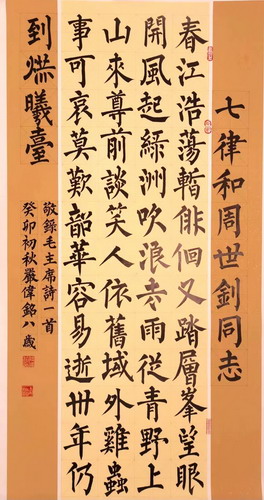 七律和周世釗同志
春江浩蕩暫徘徊又踏層峯望眼
開風起綠洲吹浪去雨從青野上
山來尊前談笑人依舊域外雞蟲
事可哀莫歎韶華容易逝卅年仍
到爀曦臺
敬錄毛主席詩一首
癸卯初秋嚴偉銘八歲